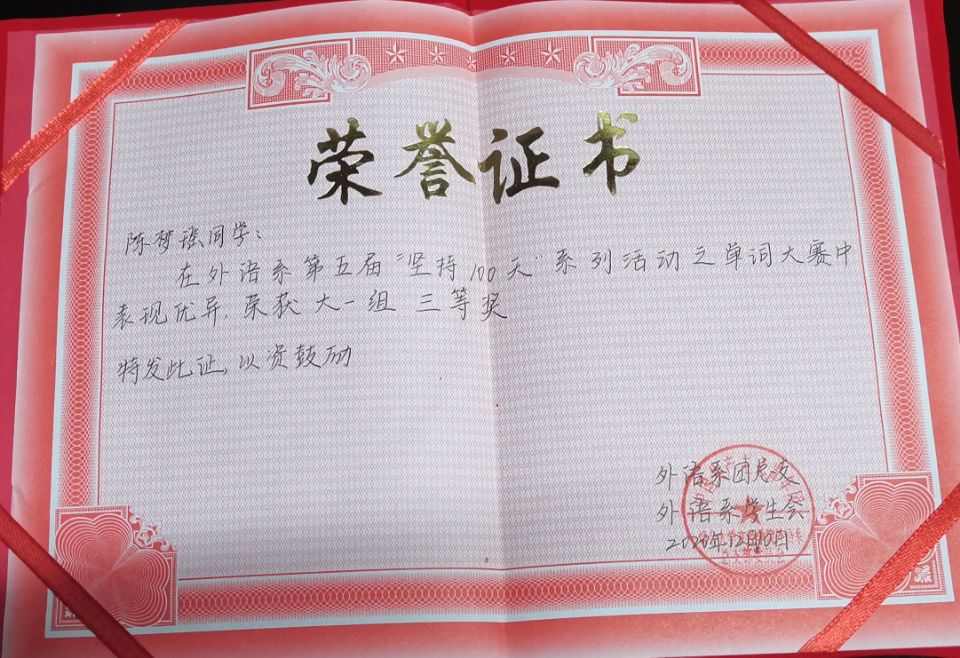 荣誉证书
陈梦瑶同学：
在外语系第五届“坚持100天”系列活动之单词大赛中
表现优异，荣获 大一组 三等奖
特发此证，以资鼓励
外语系团总支
外语系学生会
2020年12月10日